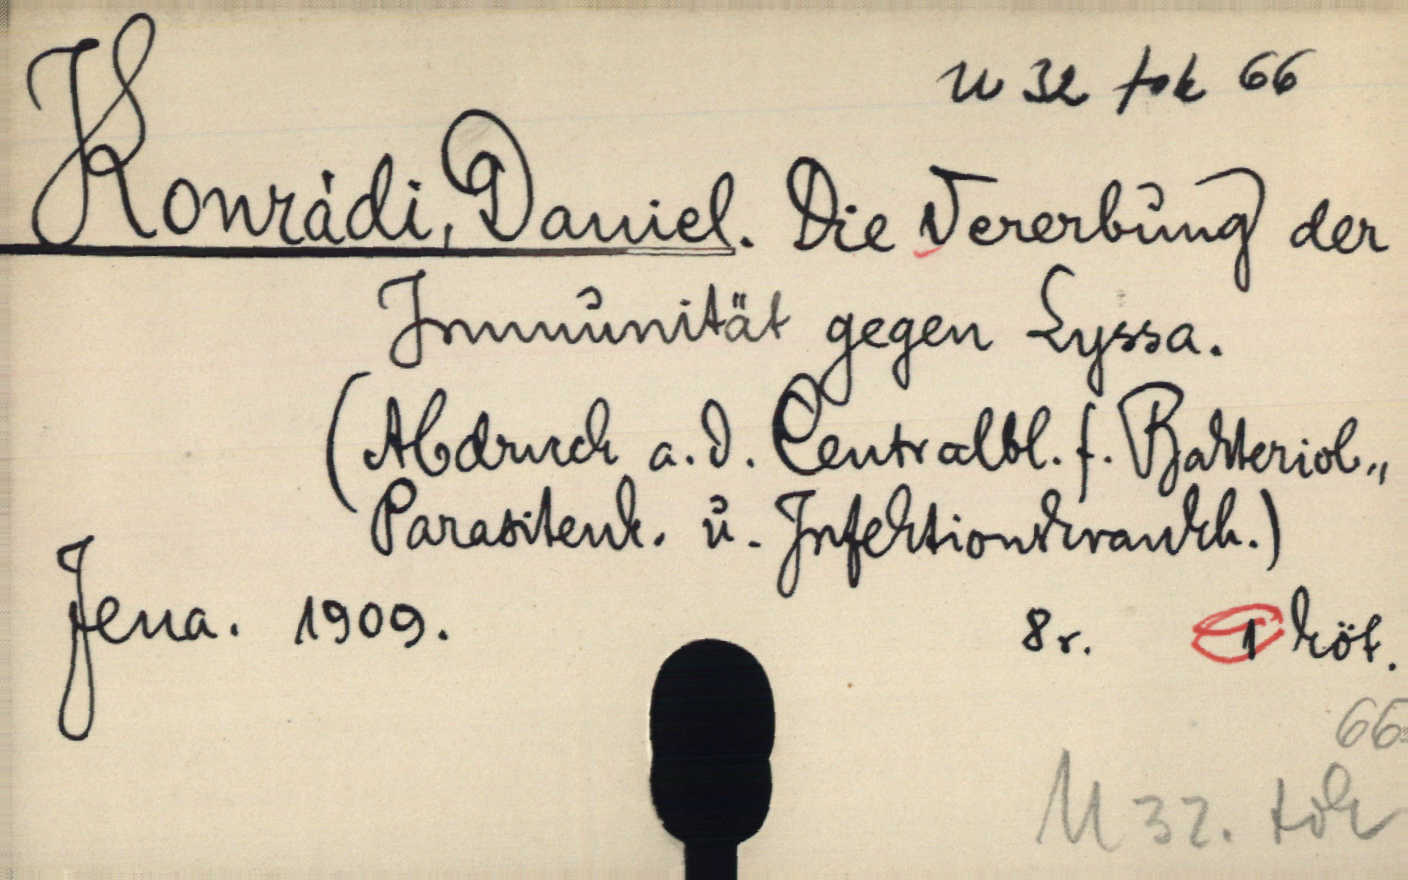 U 32 tok 66
Konrádi, Daniel. Die Vererbung der
Immunität gegen Lyssa.
(Abdruck a. d. Centralbl. f. Bakteriol.,
Parasitenk. u. Infektionskrankh.)
Jena. 1909. 8r. 1 köt.
66
U 32. tok